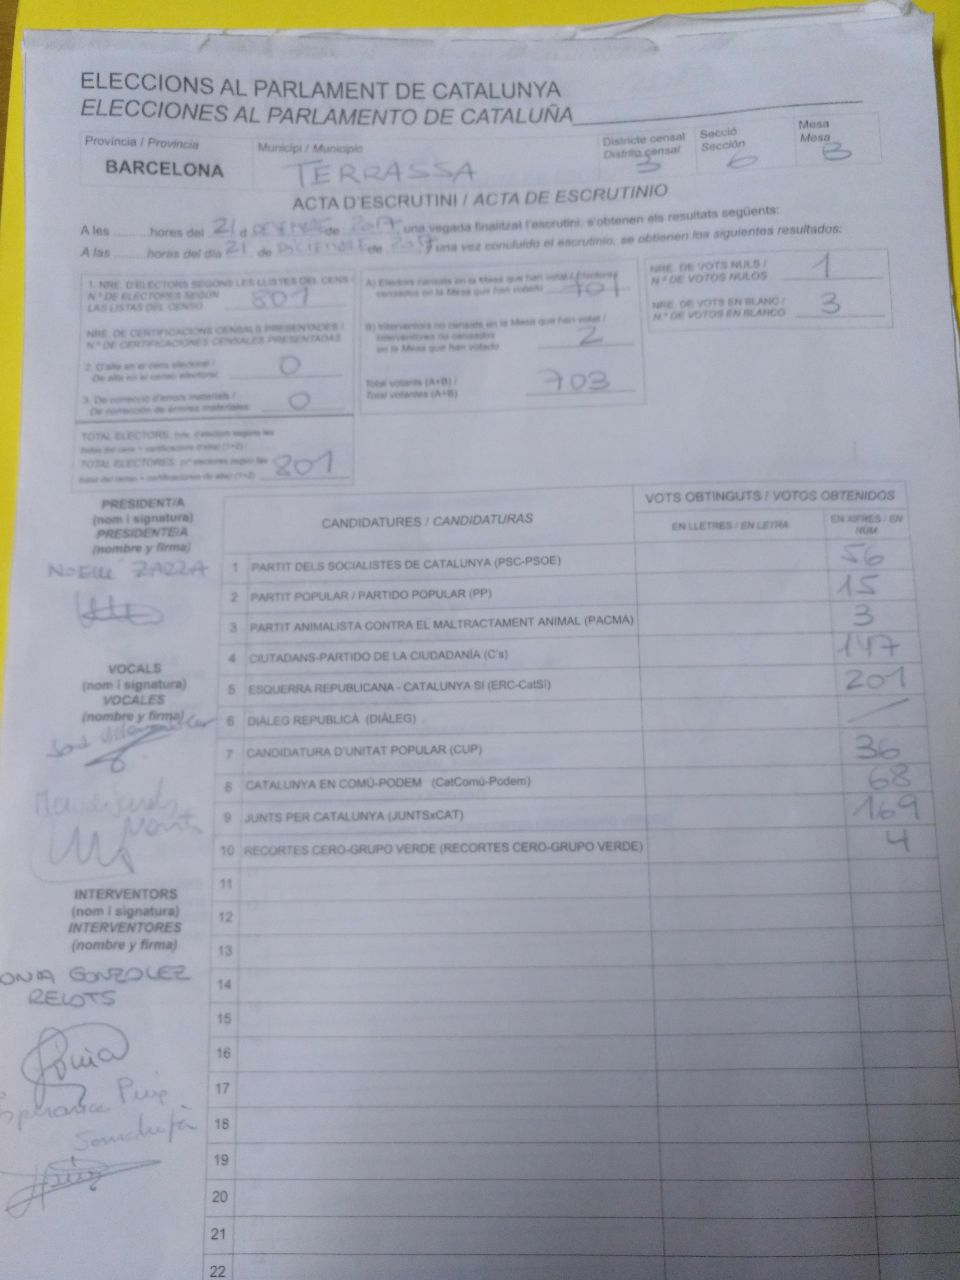 ELECCIONS AL PARLAMENT DE CATALUNYA
ELECCIONES AL PARLAMENTO DE CATALUÑA
Província / Provincia
BARCELONA
Municipi / Municipio
TERRASSA
Districte censal
Distrito censal
3
Secció
Sección
6
Mesa
Mesa
B
ACTA D'ESCRUTINI / ACTA DE ESCRUTINIO
A les .......... hores del 21 d de 2017, una vegada finalitzat l'escrutini, s'obtenen els resultats següents:
A las .......... horas del día 21 de DICIEMBRE de 2017 una vez concluido el escrutinio, se obtienen los siguientes resultados:
1. NRE. D'ELECTORS SEGONS LES LLISTES DEL CENS /
N.º DE ELECTORES SEGÚN
LAS LISTAS DEL CENSO
801
NRE. DE CERTIFICACIONS CENSALS PRESENTADES /
N.º DE CERTIFICACIONES CENSALES PRESENTADAS
2. D'alta en el cens electoral /
De alta en el censo electoral
0
3. De correcció d'errors materials /
De corrección de errores materiales
0
TOTAL ELECTORS: nre. d'electors segons les
llistes del cens + certificacions d'alta) (1+2) /
TOTAL ELECTORES: nº electores según las
listas del censo + certificaciones de alta) (1+2)
801
A) Electors censats en la Mesa que han votat / Electores
censados en la Mesa que han votado
701
B) Interventors no censats en la Mesa que han votat /
Interventores no censados
en la Mesa que han votado
2
Total votants (A+B) /
Total votantes (A+B)
703
NRE. DE VOTS NULS /
N.º DE VOTOS NULOS
1
NRE. DE VOTS EN BLANC /
N.º DE VOTOS EN BLANCO
3
PRESIDENT/A
(nom i signatura)
PRESIDENTE/A
(nombre y firma)
NOELLE ZARZA
VOCALS
(nom i signatura)
VOCALES
(nombre y firma)
INTERVENTORS
(nom i signatura)
INTERVENTORES
(nombre y firma)
ONIA GONZOLEZ
RELOTS
Sonia
Puig
CANDIDATURES / CANDIDATURAS
VOTS OBTINGUTS / VOTOS OBTENIDOS
EN LLETRES / EN LETRA
EN XIFRES / EN NÚM.
1 PARTIT DELS SOCIALISTES DE CATALUNYA (PSC-PSOE) 56
2 PARTIT POPULAR / PARTIDO POPULAR (PP) 15
3 PARTIT ANIMALISTA CONTRA EL MALTRACTAMENT ANIMAL (PACMA) 3
4 CIUTADANS-PARTIDO DE LA CIUDADANÍA (C's) 147
5 ESQUERRA REPUBLICANA - CATALUNYA SÍ (ERC-CatSí) 201
6 DIÀLEG REPUBLICÀ (DIÀLEG) /
7 CANDIDATURA D'UNITAT POPULAR (CUP) 36
8 CATALUNYA EN COMÚ-PODEM (CatComú-Podem) 68
9 JUNTS PER CATALUNYA (JUNTSxCAT) 169
10 RECORTES CERO-GRUPO VERDE (RECORTES CERO-GRUPO VERDE) 4
11
12
13
14
15
16
17
18
19
20
21
22